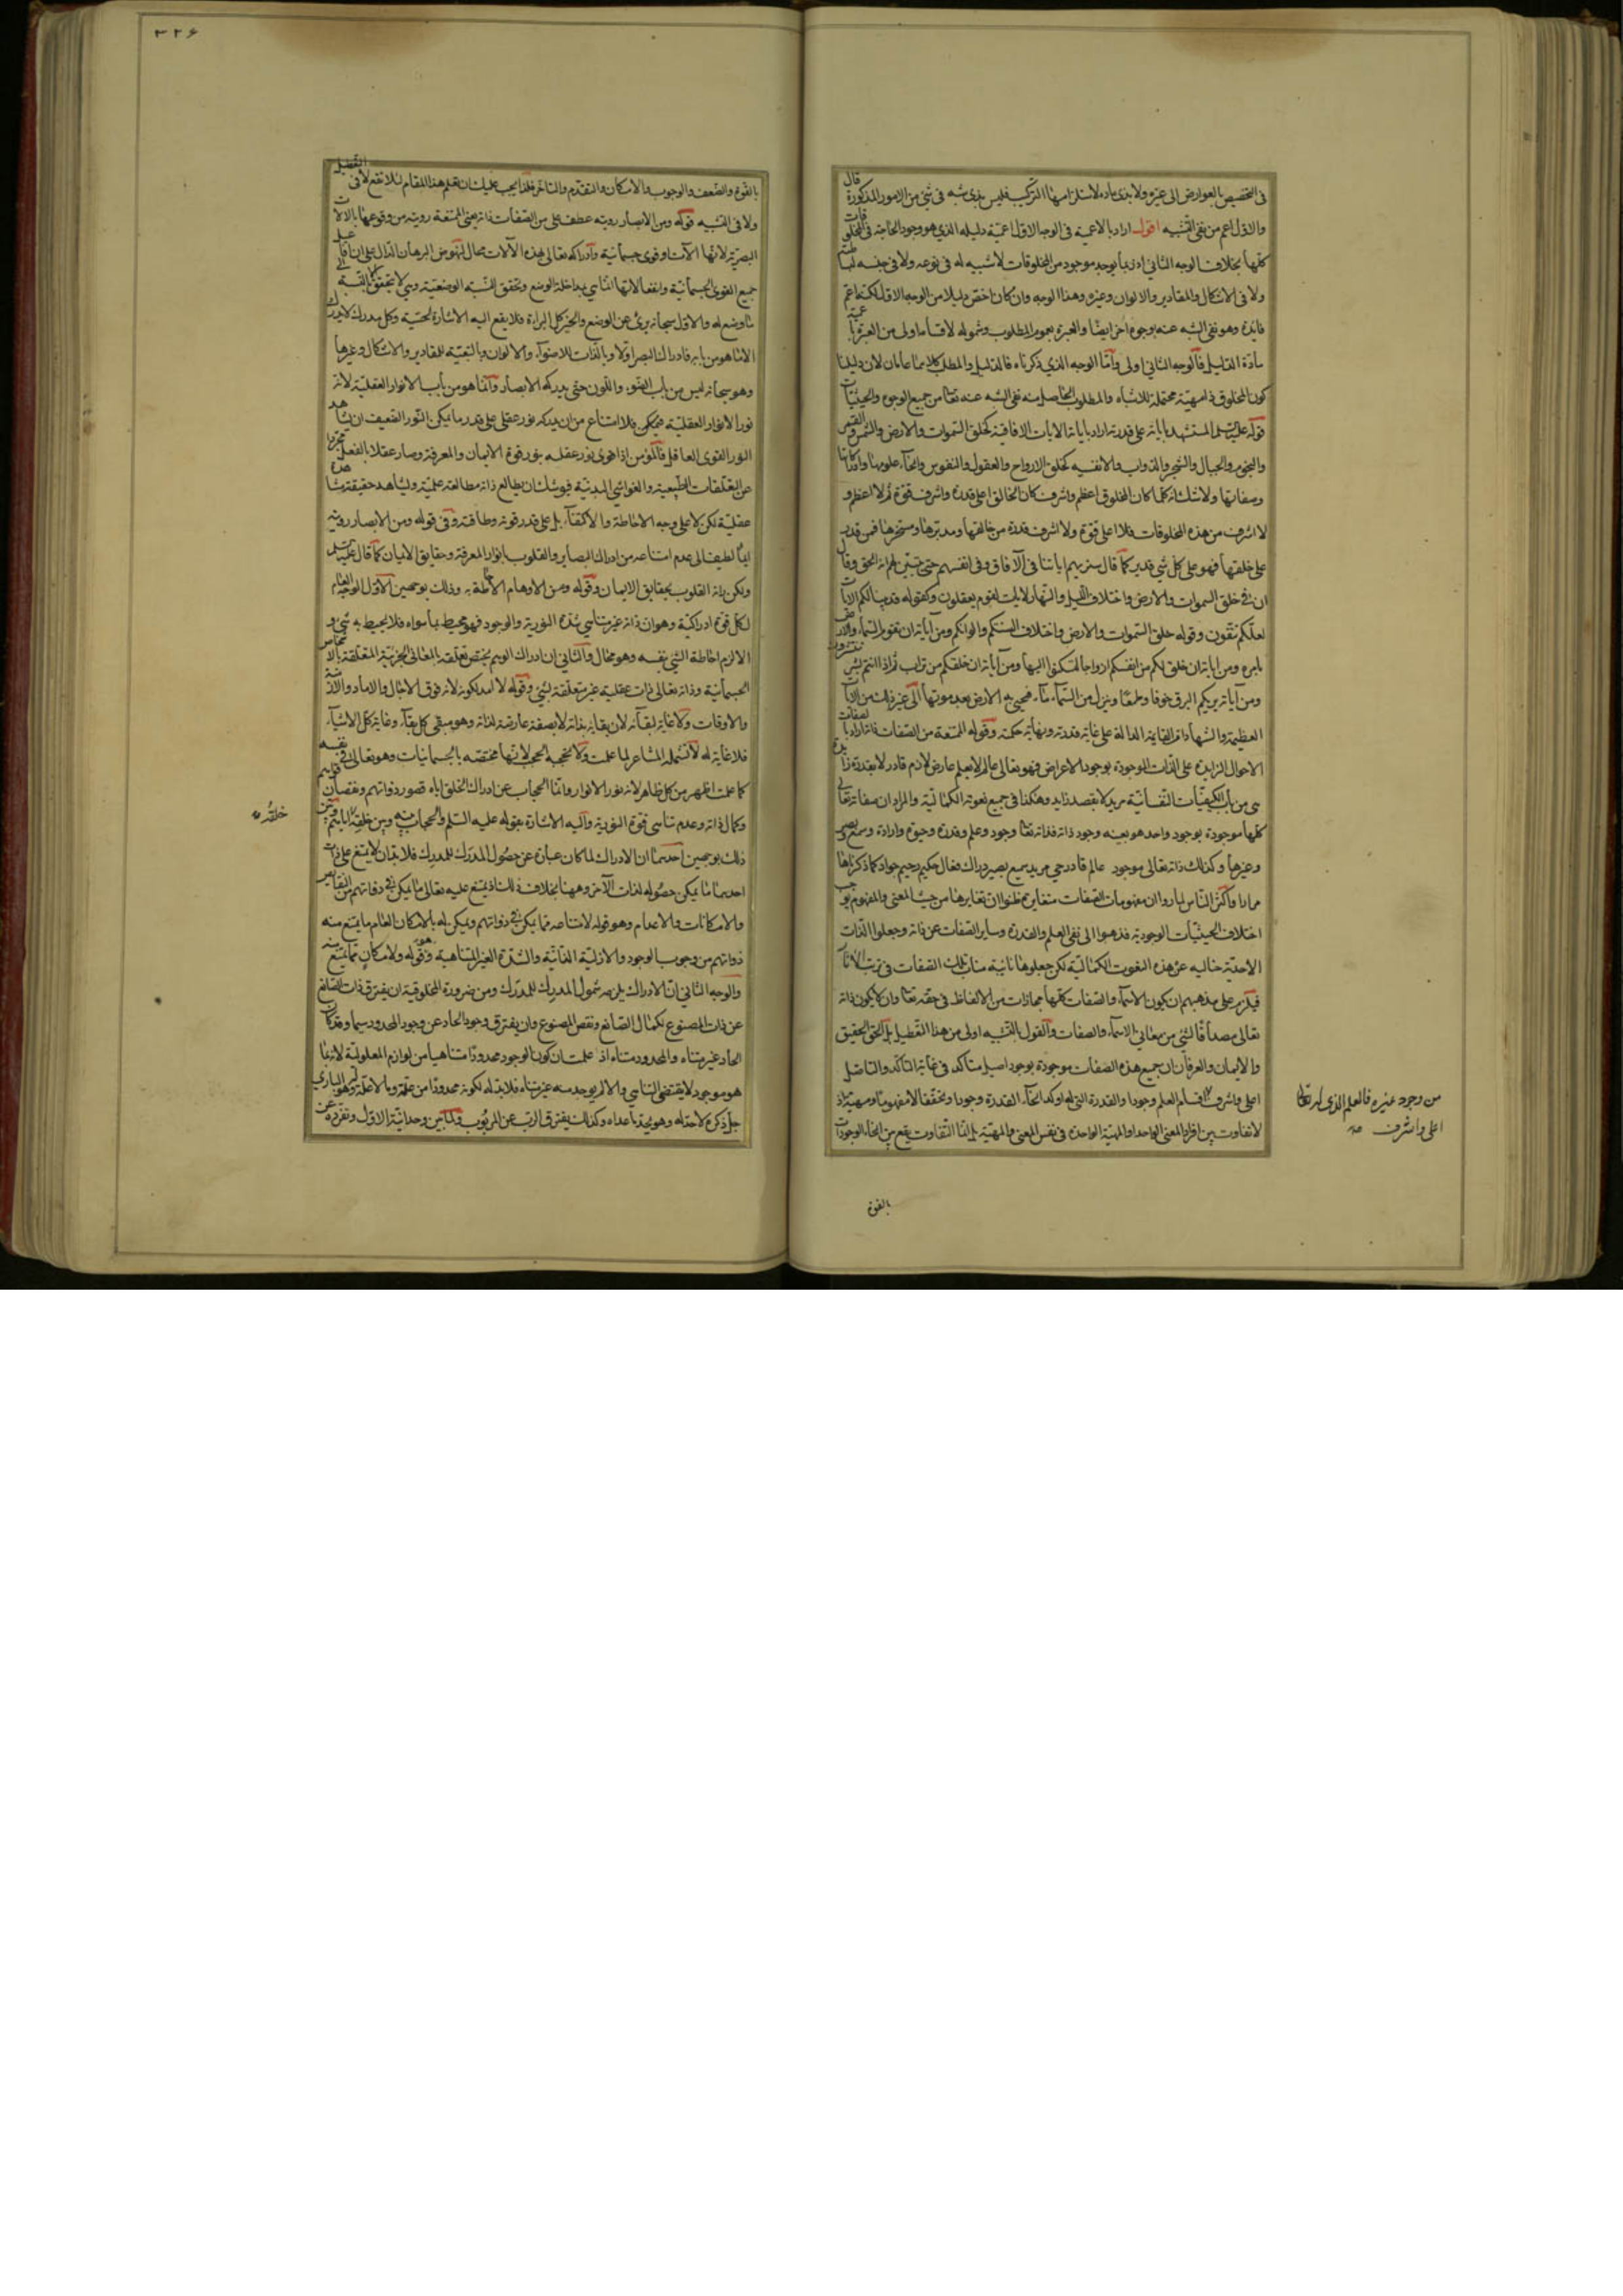 فى التخصيص بالعوارض الى غيره ولا بذى مادة لاستلزامها التركيب فليس بذى شبه فى شئ من الامور المذكورة قال
والاول اعم من نفى التشبيه اقول اراد بالاعمية فى الوجه الاول اعمية دليله الذى هو وجود الحاجة فى المخلوقات
كلها بخلاف الوجه الثانى اذ ربما يوجد موجود من المخلوقات لا شبيه له فى نوعه ولا فى جنسه
ولا فى الاشكال والمقادير والالوان وغيره وهذا الوجه وان كان اخص دليلا من الوجه الاول لكنه اعم
فايدة وهو نفى الشبه عنه بوجوه اخر ايضا والعبرة بعموم المطلوب وشموله لاقسام اولى من العبرة
مادة الدليل فالوجه الثانى اولى واما الوجه الذى ذكرناه فالدليل والمطلب كلاهما عامان لان دليلنا
كون المخلوق ذا مهية محتملة للاشباه والمطلوب الحاصل منه نفى الشبه عنه تعالى من جميع الوجوه والحيثيات
قوله عليه السلم المستشهد باياته على قدرته اراد باياته الايات الافاقية كخلق السموات والارض والشمس والقمر
والنجوم والجبال والشجر والدواب والانفسية كخلق الارواح والعقول والنفوس وانحاء علومها وادراكاتها
وصفاتها ولا شك انه كلما كان المخلوق اعظم واشرف كان الخالق اعلى قدرة واشرف قوة ثم لا اعظم و
لا اشرف من هذه المخلوقات فلا اعلى قوة ولا اشرف قدرة من خالقها ومدبرها ومسخرها فمن قدر
على خلقها فهو على كل شئ قدير كما قال سنريهم اياتنا فى الآفاق وفى انفسهم حتى يتبين لهم انه الحق وقال
ان فى خلق السموات والارض واختلاف الليل والنهار لايات لقوم يعقلون وكقوله قد بينا لكم الايات
لعلكم تتقون وقوله خلق السموات والارض واختلاف السنتكم والوانكم ومن آياته ان تقوم السماء والارض
بامره ومن اياته ان خلق لكم من انفسكم ازواجا لتسكنوا اليها ومن آياته ان خلقكم من تراب ثم اذا انتم بشر تنتشرون
ومن آياته يريكم البرق خوفا وطمعا وينزل من السماء ماء فيحيى به الارض بعد موتها الى غير ذلك من الايات
العظيمة والشهادات القاينة الدالة على غاية قدرته ونهاية حكمته وقوله الممتنعة من الصفات ذاته اراد بالصفات
الاحوال الزايدة على الذات الموجودة بوجود الاعراض فهو تعالى عالم لا بعلم عارض لازم قادر لا بقدرة زايدة
هى من باب الكيفيات النفسانية مريد لا بقصد زايد وهكذا فى جميع نعوته الكمالية والمراد ان صفاته تعالى
كلها موجودة بوجود واحد هو بعينه وجود ذاته فذاته تعالى وجود وعلم وقدرة وحيوة وارادة وسمع وبصر
وغيرها وكذلك ذاته تعالى موجود عالم قادر حى مريد سميع بصير دراك فعال حكيم رحيم جواد كما ذكرناها
مرارا واكثر الناس لما راوا ان مفهومات الصفات متغايرة ظنوا ان تغايرها من حيث المعنى والمفهوم يوجب
اختلاف الحيثيات الوجودية فذهبوا الى نفى العلم والقدرة وساير الصفات عن ذاته وجعلوا الذات
الاحدية خالية عن هذه النعوت الكمالية لكن جعلوها نايبة مناب تلك الصفات فى ترتب الآثار
فيلزم على مذهبهم ان يكون الاسماء والصفات كلها مجازات من الالفاظ فى حقه تعالى وان لا يكون ذاته
تعالى مصداقا لشئ من معانى الاسماء والصفات والقول بالتشبيه اولى من هذا التعطيل بل الحق الحقيق
والايمان والعرفان ان جميع هذه الصفات موجودة بوجود اصيل متاكد فى غاية التاكد والتاصل
اعلى واشرف اقسام العلم وجودا والقدرة التى له اوكد انحاء القدرة وجودا وتحققا لا مفهوما ومهية اذ
لا تفاوت بين افراد المعنى الواحد او المهية الواحدة فى نفس المعنى والمهية بل انما التفاوت يقع بين انحاء الوجودات
من وجود غيره فالعلم الذى له تعالى
اعلى واشرف صح
بالقوة
٣٢۶
بالقوة والضعف والوجوب والامكان والتقدم والتاخر فلذا يجب عليك ان تعلم هذا المقام لئلا تقع لا فى التعطيل
ولا فى التشبيه قوله ومن الابصار رويته عطف على من الصفات ذاته يعنى الممتنعة رويته من وقوعها بالآلات
البصرية لانها الآت وقوى جسمانية وادراكه تعالى بهذه الآلات محال لنهوض البرهان الدال على ان افاعيل
جميع القوى الجسمانية وانفعالاتها انما هى بمداخلة الوضع وتحقق النسبة الوضعية وهى لا تتحقق بالنسبة الى
ما لا وضع له والاول سبحانه برئ عن الوضع والحيز كل البراءة فلا يقع اليه الاشارة الحسية وكل مدرك لا يدرك
الا ما هو من بابه فادراك البصر اولا وبالذات للاضواء والالوان وبالتبعية للمقادير والاشكال وغيرها
وهو سبحانه ليس من باب الضوء واللون حتى يدركه الابصار وانما هو من باب الانوار العقلية لانه
نور الانوار العقلية فيمكن فلا امتناع من ان يدركه نور عقلى على قدر ما يمكن النور الضعيف ان يشاهد
النور القوى العاقل فالمؤمن اذا قوى نور عقله بنور قوة الايمان والمعرفة وصار عقلا بالفعل مجردا
عن التعلقات الطبيعية والغواشى البدنية فيوشك ان يطالع ذاته مطالعة علمية ويشاهد حقيقته مشاهدة
عقلية لكن لا على وجه الاحاطة والاكتناه بل على قدر قوته وطاقته وفى قوله ومن الابصار رويته
ايماء لطيف الى عدم امتناعه من ادراك البصاير والقلوب بانوار المعرفة وحقايق الايمان كما قال عليه السلم
ولكن راته القلوب بحقايق الايمان وقوله ومن الاوهام الاحاطة به وذلك بوجهين الاول الوجه العام
لكل قوة ادراكية وهو ان ذاته غير متناهى شدة النورية والوجود فهو محيط بما سواه فلا يحيط به شئ و
الا لزم احاطة الشئ بنفسه وهو محال والثانى ان ادراك الوهم يختص تعلقه بالمعانى الجزئية المتعلقة بالاجسام
الجسمانية وذاته تعالى ذات عقلية غير متعلقة بشئ وقوله لا امد لكونه لانه فوق الاجال والاماد والازمنة
والاوقات ولا غاية لبقائه لان بقائه بذاته لا بصفة عارضة لذاته وهو مبقى كل بقاء وغاية كل الاشياء
فلا غاية له لا تشمله المشاعر لما علمت ولا تحجبه الحجب لانها مختصة بالجسمانيات وهو تعالى فى نفسه
كما علمت اظهر من كل ظاهر لانه نور الانوار وانما الحجاب عن ادراك الخلق اياه قصور ذواتهم ونقصان قواهم
وكمال ذاته وعدم تناهى قوة النورية واليه الاشارة بقوله عليه السلم والحجاب بينه وبين خلقه
ذلك بوجهين احدهما ان الادراك لما كان عبارة عن حصول المدرَك للمدرِك فلا بد ان لا يمتنع على ذات
احدهما ما يمكن حصوله لذات الآخر وههنا بخلاف ذلك اذ يمتنع عليه تعالى ما يمكن فى ذواتهم من النقايص
والامكانات والاعدام وهو قوله لامتناعه مما يمكن فى ذواتهم ويمكن له بالامكان العام ما يمتنع منه
ذواتهم من وجوب الوجود والازلية الذاتية والشدة الغير المتناهية وهو قوله ولامكان مما يمتنع منه
والوجه الثانى ان الادراك يلزمه شمول المدرِك للمدرَك ومن ضرورة المخلوقية ان يفترق ذات الصانع
عن ذات المصنوع لكمال الصانع ونقص المصنوع وان يفترق وجود الحاد عن وجود المحدود سيما وقد كان
الحاد غير متناه والمحدود متناه اذ علمت ان كون الوجود محدودا متناهيا من لوازم المعلولية لانه بما
هو موجود لا يقتضى التناهى والا لم يوجد منه غير متناه فلا بد له لكونه محدودا من علة وما لا علة له وهو البارى
جل ذكره لا حد له وهو يحد ما عداه وكذلك يفترق الرب عن المربوب ولما بين وحدانية الاول وتفرده عن
خلقه صح